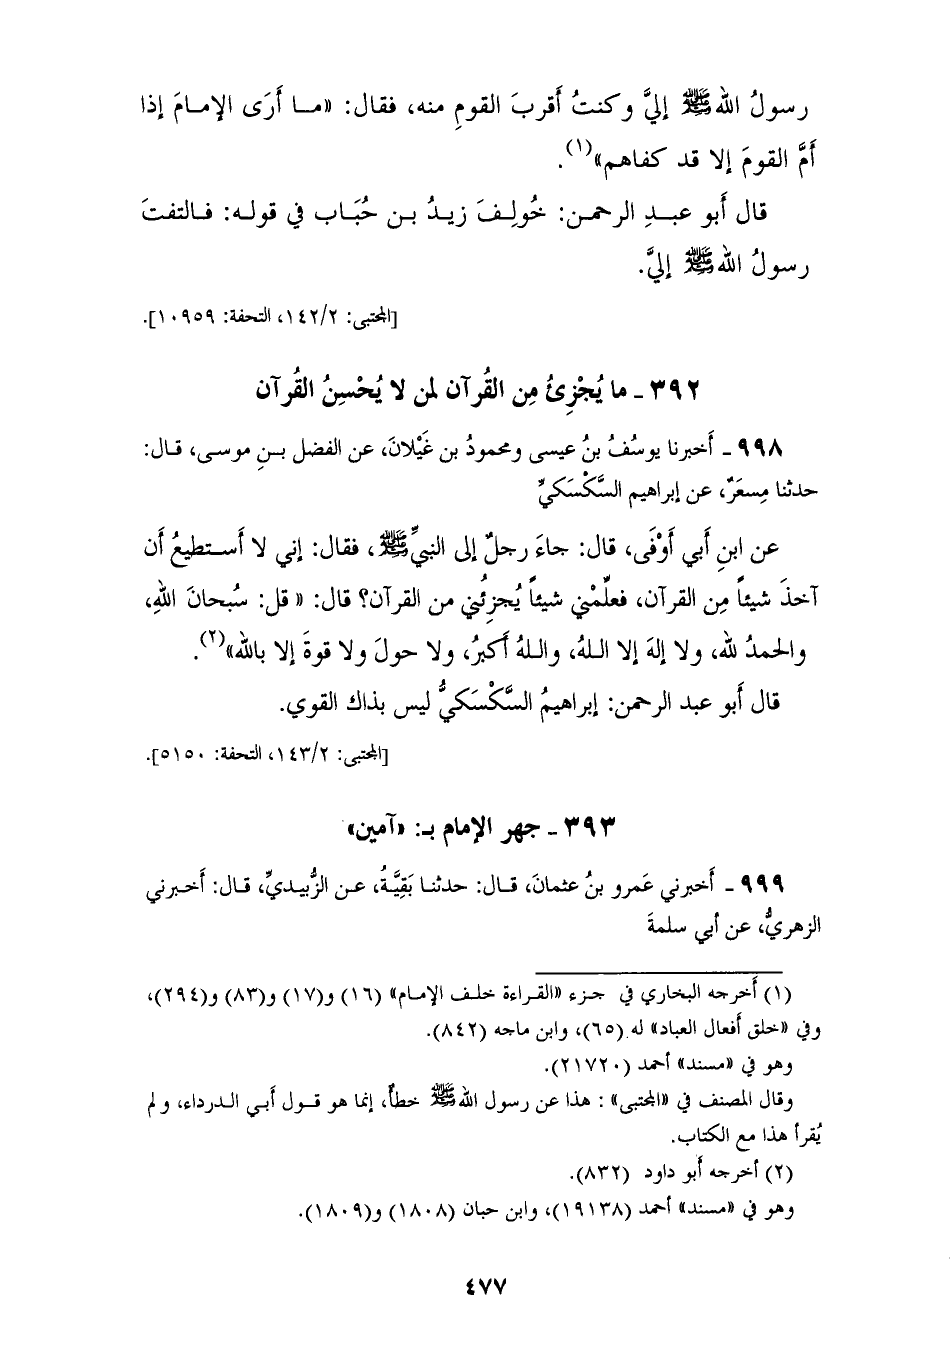 رسولُ الله ﷺ إليَّ وكنتُ أقربَ القومِ منه، فقال: «ما أَرَى الإمامَ إذا
أَمَّ القومَ إلا قد كفاهم»(١).
قال أبو عبدِ الرحمن: خُولِفَ زيدُ بن حُبَاب في قوله: فالتفتَ
رسولُ الله ﷺ إليَّ.
[المجتبى: ١٤٢/٢، التحفة: ١٠٩٥٩].
٣٩٢ ـ ما يُجْزِئُ مِن القُرآن لمن لا يُحْسِنُ القُرآن
٩٩٨ ـ أَخبرنا يوسُفُ بنُ عيسى ومحمودُ بن غَيْلانَ، عن الفضل بنِ موسى، قال:
حدثنا مِسعَرٌ، عن إبراهيم السَّكْسَكيِّ
عن ابنِ أَبي أَوْفَى، قال: جاءَ رجلٌ إلى النبيِّ ﷺ، فقال: إني لا أَستطيعُ أَن
آخذَ شيئاً مِن القرآن، فعلِّمْني شيئاً يُجزِئُني من القرآن؟ قال: «قل: سُبحانَ اللهِ،
والحمدُ لله، ولا إلهَ إلا اللهُ، واللهُ أَكبرُ، ولا حولَ ولا قوةَ إلا بالله»(٢).
قال أَبو عبد الرحمن: إبراهيمُ السَّكْسَكيُّ ليس بذاك القوي.
[المجتبى: ١٤٣/٢، التحفة: ٥١٥٠].
٣٩٣ ـ جهر الإمام بـ: «آمين»
٩٩٩ ـ أَخبرني عَمرو بنُ عثمانَ، قال: حدثنا بَقِيَّةُ، عن الزُّبيديِّ، قال: أَخبرني
الزهريُّ، عن أبي سلمةَ
(١) أَخرجه البخاري في جزء «القراءة خلف الإمام» (١٦) و(١٧) و(٨٣) و(٢٩٤)،
وفي «خلق أَفعال العباد» له (٦٥)، وابن ماجه (٨٤٢).
وهو في «مسند» أحمد (٢١٧٢٠).
وقال المصنف في «المجتبى» : هذا عن رسول الله ﷺ خطأٌ، إنما هو قول أَبي الدرداء، ولم
يُقرأ هذا مع الكتاب.
(٢) أخرجه أَبو داود (٨٣٢).
وهو في «مسند» أحمد (١٩١٣٨)، وابن حبان (١٨٠٨) و(١٨٠٩).
٤٧٧